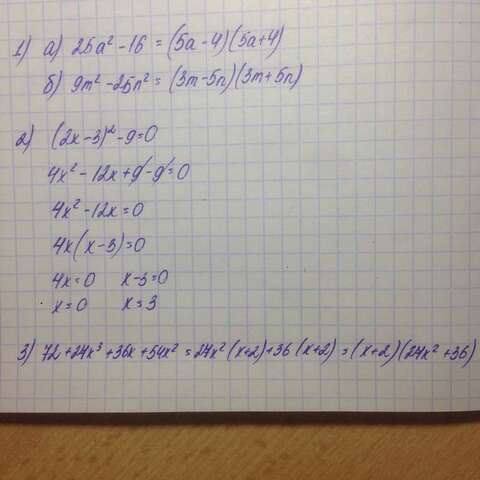 1) а) 25a² - 16 = (5a - 4)(5a + 4)
б) 9m² - 25n² = (3m - 5n)(3m + 5n)
2) (2x - 3)² - 9 = 0
4x² - 12x + 9 - 9 = 0
4x² - 12x = 0
4x(x - 3) = 0
4x = 0 x - 3 = 0
x = 0 x = 3
3) 72 + 24x³ + 36x + 54x² = 24x²(x + 2) + 36(x + 2) = (x + 2)(24x² + 36)